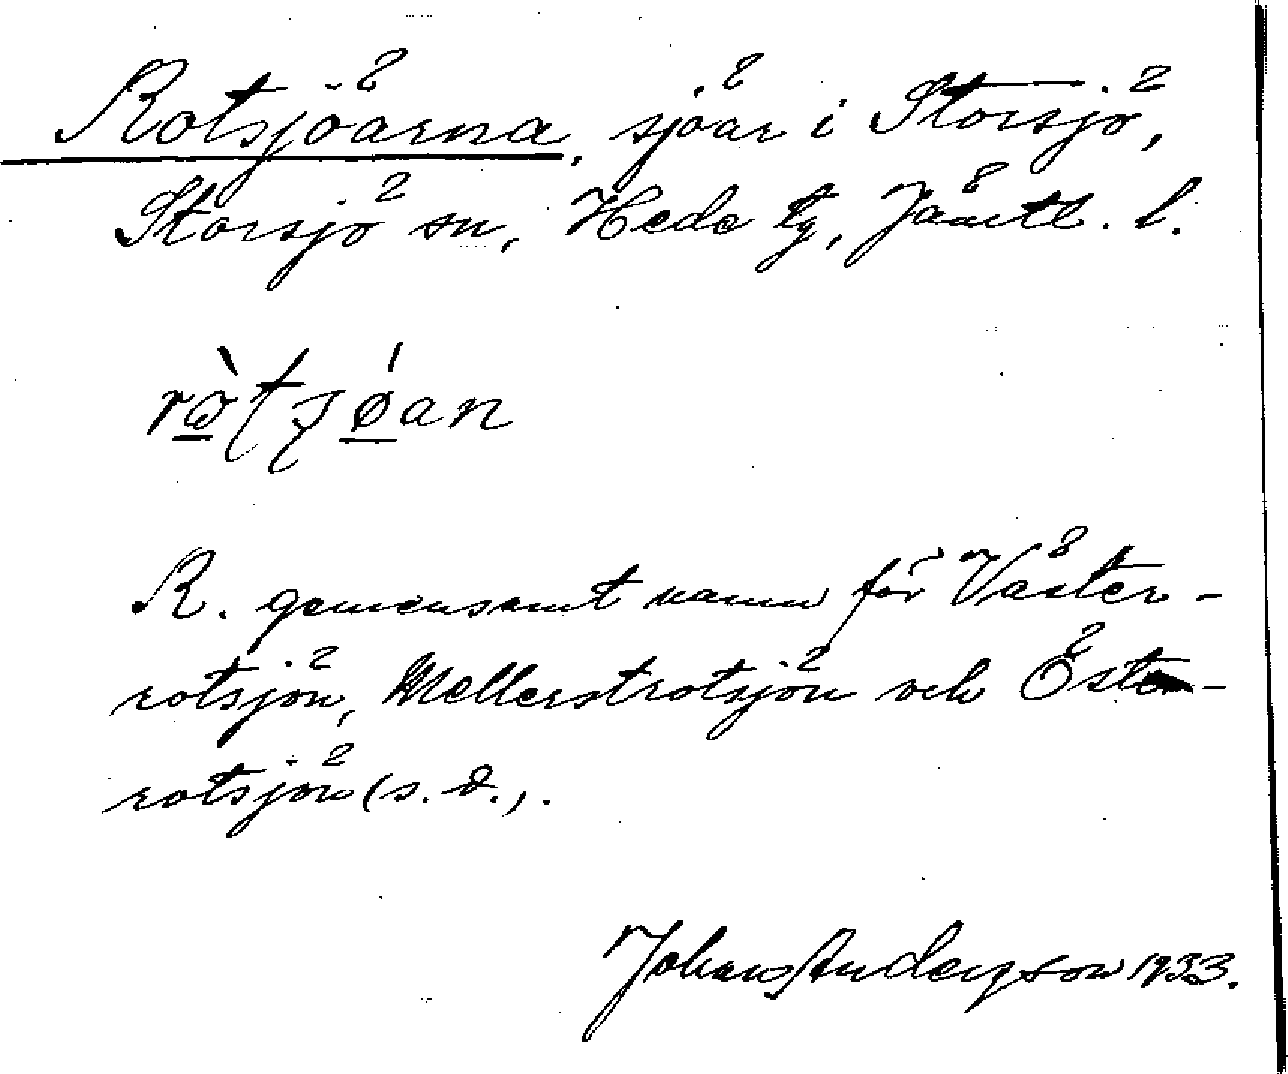 Rotsjöarna, sjöar i Storsjö,
Storsjö sn, Hede tg, Jämtl. l.
R. gemensamt namn för Väster-
rotsjön, Mellerstrotsjön och Öster-
rotsjön (s. d.).
Johans Anderson 1933.